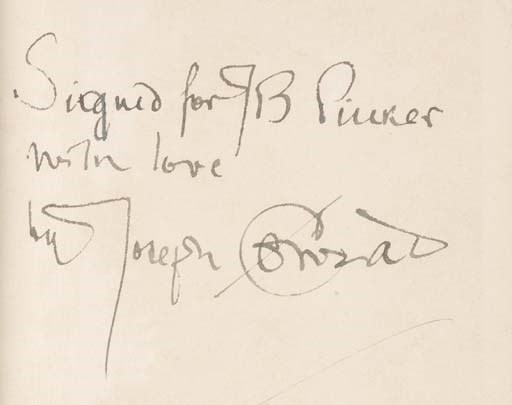 Signed for JB Pinker
with love
by Joseph Conrad